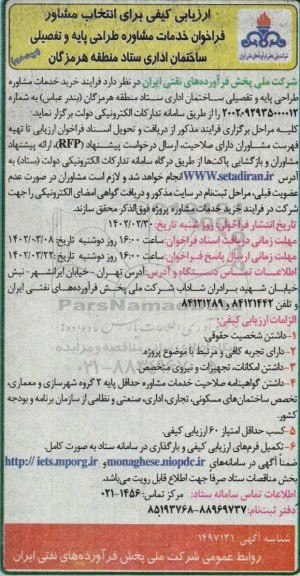 ارزیابی کیفی برای انتخاب مشاور
فراخوان خدمات مشاوره طراحی پایه و تفصیلی
ساختمان اداری ستاد منطقه هرمزگان
شرکت ملی پخش فرآورده‌های نفتی ایران در نظر دارد فرایند خرید خدمات مشاوره
طراحی پایه و تفصیلی ساختمان اداری ستاد منطقه هرمزگان (بندر عباس) به شماره
۲۰۰۲۰۹۲۹۳۵۰۰۰۰۱۲ را از طریق سامانه تدارکات الکترونیکی دولت برگزار نماید:
کلیه مراحل برگزاری فرایند مذکور از دریافت و تحویل اسناد فراخوان ارزیابی تا تهیه
فهرست مشاوران دارای صلاحیت، ارسال درخواست پیشنهاد (RFP)، ارائه پیشنهاد
مشاوران و بازگشایی پاکت‌ها از طریق درگاه سامانه تدارکات الکترونیکی دولت (ستاد) به
آدرس WWW.setadiran.ir انجام خواهد شد و لازم است مشاوران در صورت عدم
عضویت قبلی، مراحل ثبت‌نام در سایت مذکور و دریافت گواهی امضای الکترونیکی را جهت
شرکت در فرایند خرید خدمات مشاوره پروژه فوق‌الذکر محقق سازند.
تاریخ انتشار فراخوان: روز شنبه تاریخ: ۱۴۰۲/۰۲/۳۰
مهلت زمانی دریافت اسناد فراخوان: ساعت ۱۶:۰۰ روز دوشنبه تاریخ ۱۴۰۲/۰۳/۰۸
مهلت زمانی ارسال پاسخ فراخوان: ساعت ۱۶:۰۰ روز دوشنبه تاریخ: ۱۴۰۲/۰۳/۲۲
اطلاعات تماس دستگاه و آدرس: آدرس تهران - خیابان ایرانشهر - نبش
خیابان شهید برادران شاداب شرکت ملی پخش فرآورده‌های نفتی ایران
و تلفن ۸۴۱۲۱۴۴۲ و ۸۴۱۲۱۲۸۹
الزامات ارزیابی کیفی:
۱- داشتن شخصیت حقوقی.
۲- دارای تجربه کافی و مرتبط با موضوع پروژه.
۳- داشتن امکانات، تجهیزات و نیروی متخصص
۴- داشتن گواهینامه صلاحیت خدمات مشاوره حداقل پایه ۲ گروه شهرسازی و معماری،
تخصص ساختمان‌های مسکونی، تجاری، اداری، صنعتی و نظامی از سازمان برنامه و بودجه
کشور.
۵- کسب حداقل امتیاز ۶۰ ارزیابی کیفی.
۶- تکمیل فرم‌های ارزیابی کیفی و بارگذاری در سامانه ستاد به صورت کامل.
ضمناً آگهی در سامانه‌های monaghese.niopdc.ir و http://iets.mporg.ir
بخش مناقصات ستاد صرفاً جهت اطلاع قابل رویت می‌باشد.
اطلاعات تماس سامانه ستاد: مرکز تماس: ۱۴۵۶-۰۲۱
دفتر ثبت‌نام: ۸۸۹۶۹۷۳۷-۸۵۱۹۳۷۶۸
شناسه آگهی: ۱۴۹۷۱۳۱
روابط عمومی شرکت ملی پخش فرآورده‌های نفتی ایران